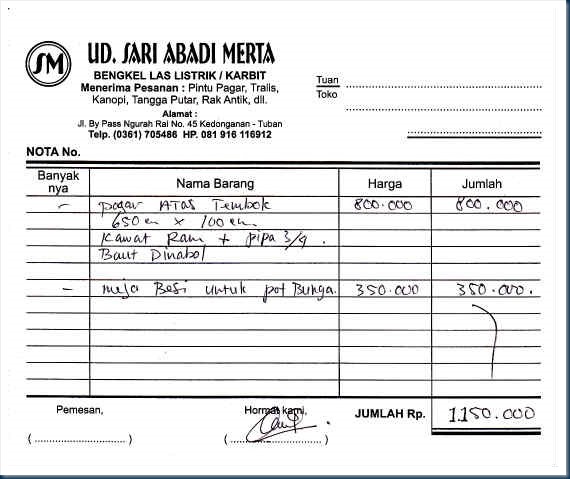 SM
UD. SARI ABADI MERTA
BENGKEL LAS LISTRIK / KARBIT
Menerima Pesanan : Pintu Pagar, Tralis,
Kanopi, Tangga Putar, Rak Antik, dll.
Alamat :
Jl. By Pass Ngurah Rai No. 45 Kedonganan - Tuban
Telp. (0361) 705486 HP. 081 916 116912
Tuan
Toko
NOTA No.
Banyak nya Nama Barang Harga Jumlah
- pagar Atas Tembok 800.000 800.000
650 cm x 100 cm.
Kawat Ram + pipa 3/4.
Baut Dinabol
- meja Besi untuk pot Bunga. 350.000 350.000.
Pemesan, Hormat kami, JUMLAH Rp. 1.150.000